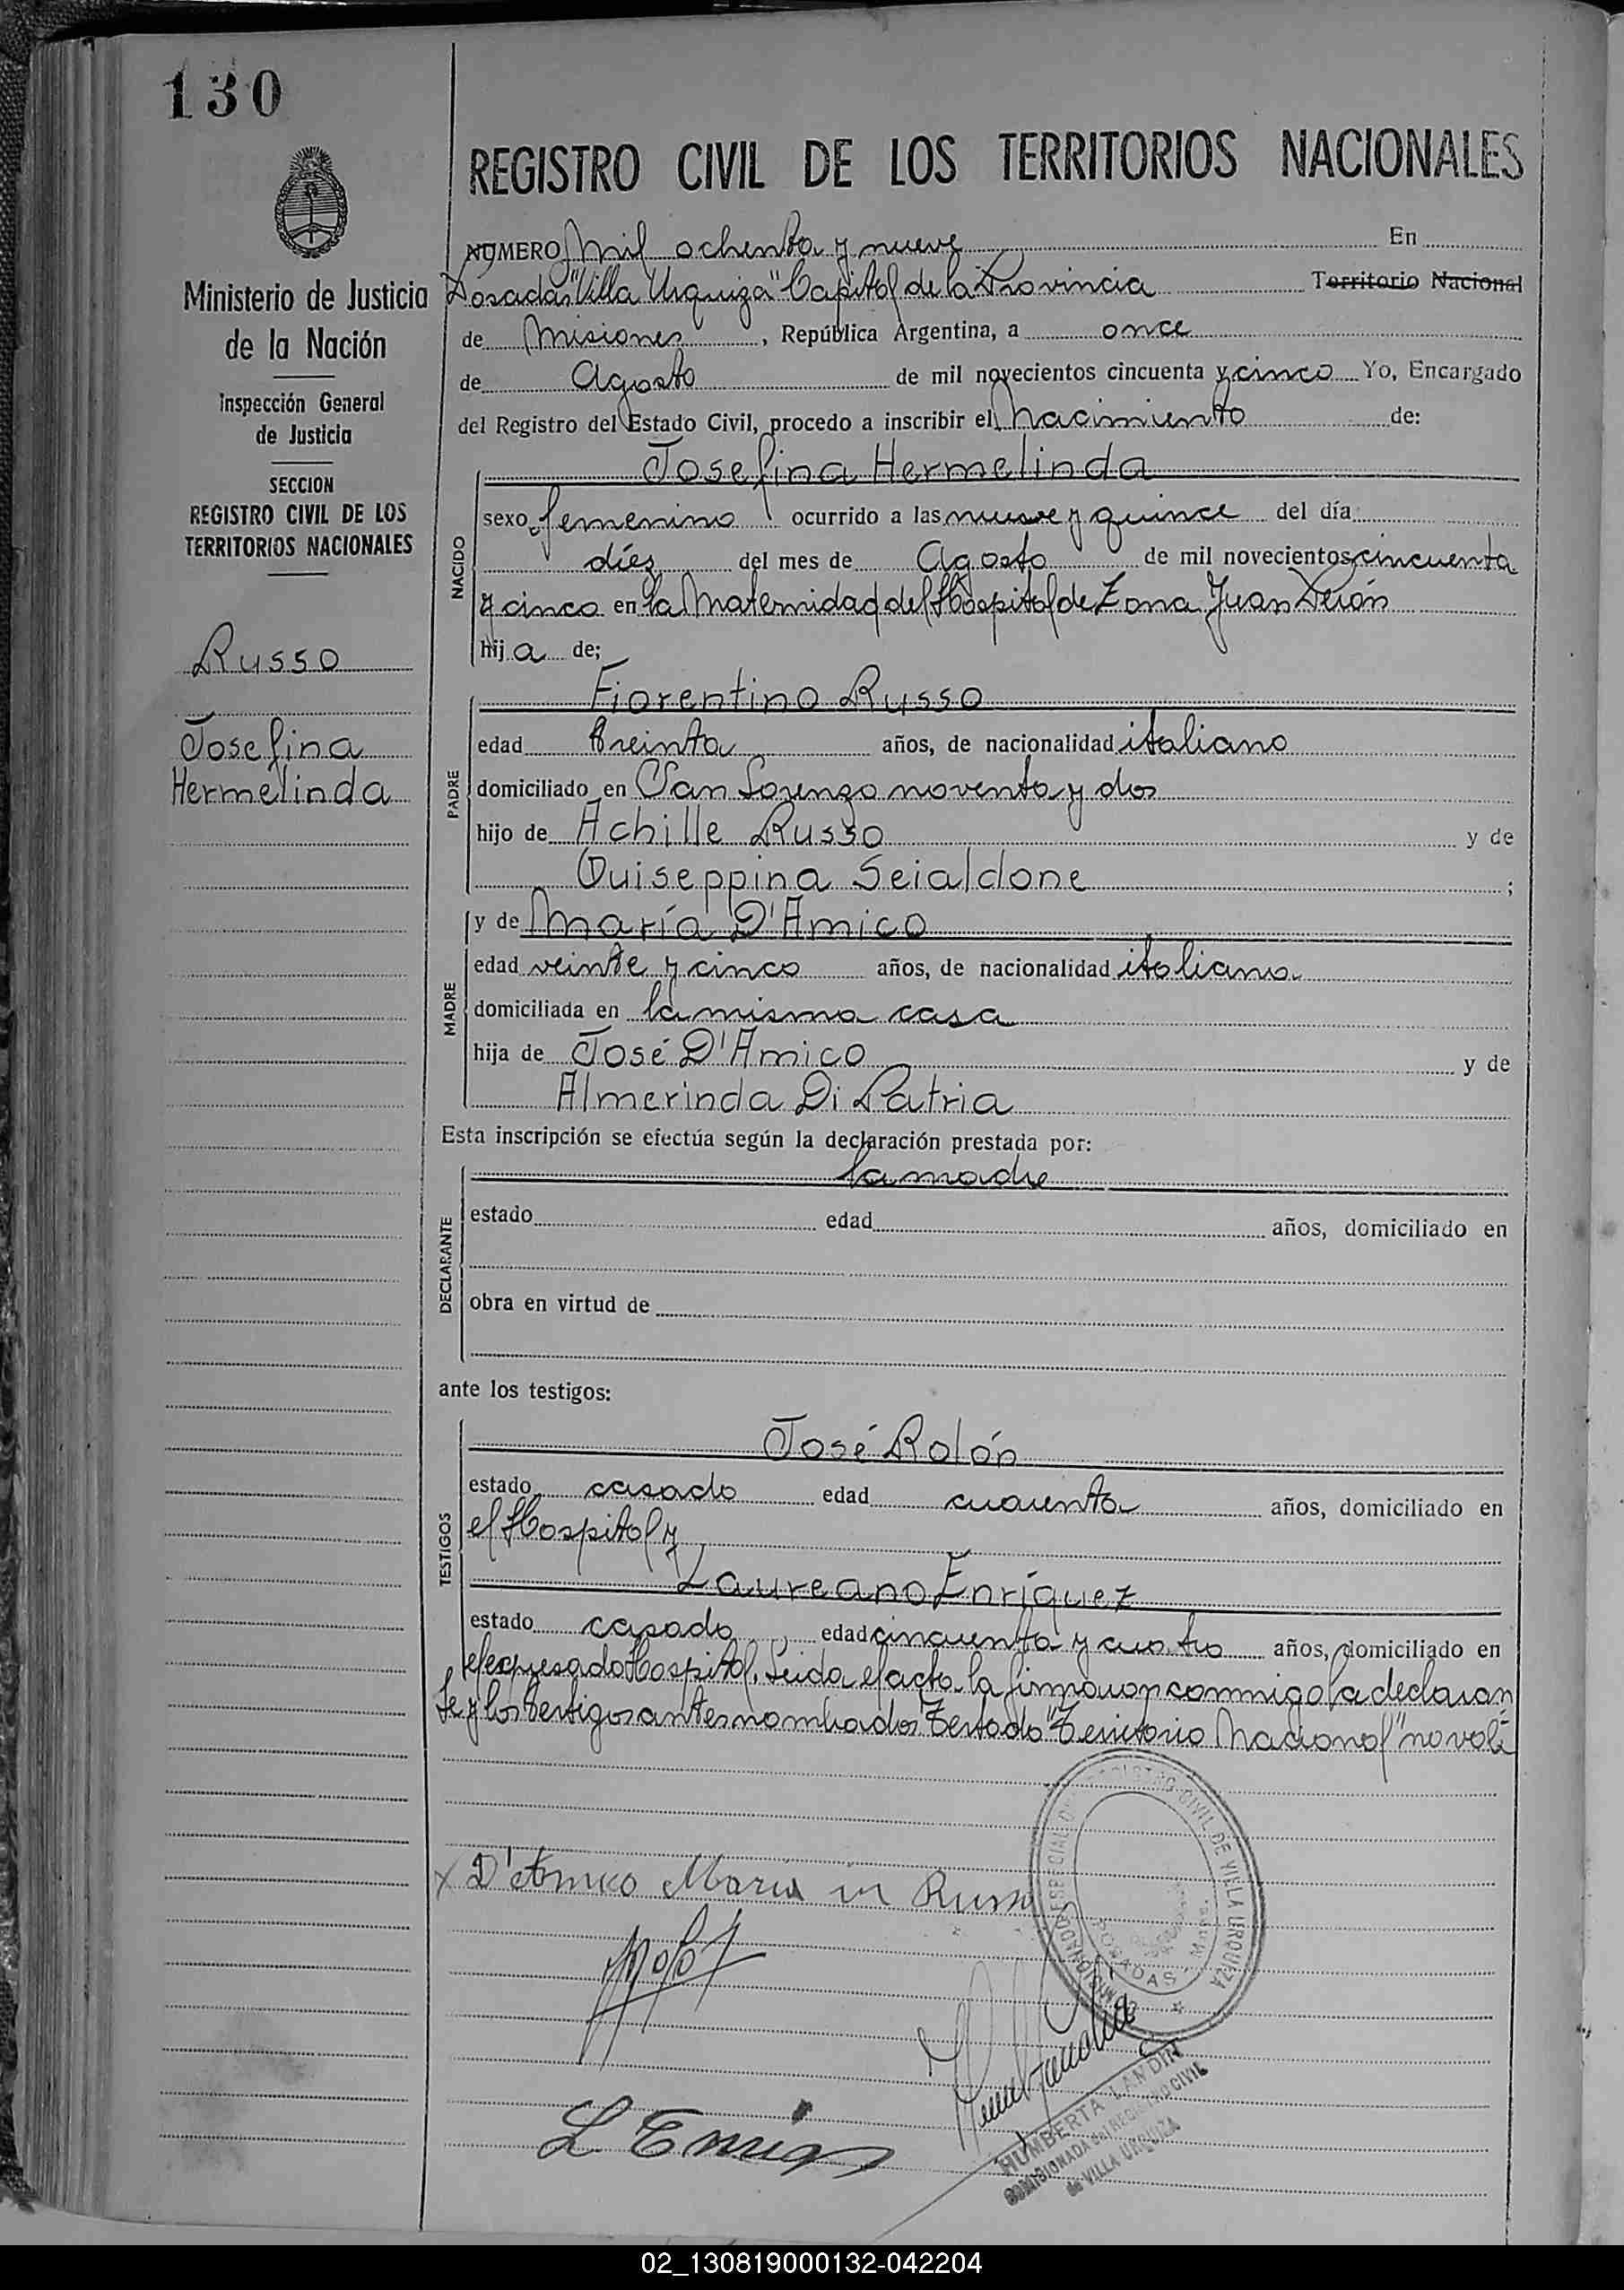 130
REGISTRO CIVIL DE LOS TERRITORIOS NACIONALES
Ministerio de Justicia
de la Nación
Inspección General
de Justicia
SECCION
REGISTRO CIVIL DE LOS
TERRITORIOS NACIONALES
Russo
Josefina
Hermelinda
NUMERO Mil ochenta y nueve En
Posadas "Villa Urquiza" Capital de la Provincia Territorio Nacional
de Misiones, República Argentina, a once
de Agosto de mil novecientos cincuenta y cinco Yo, Encargado
del Registro del Estado Civil, procedo a inscribir el Nacimiento de:
NACIDO
Josefina Hermelinda
sexo femenino ocurrido a las nueve y quince del día
díez del mes de Agosto de mil novecientos cincuenta
y cinco en la Maternidad del Hospital de Zona Juan Perón
hija de;
PADRE
Fiorentino Russo
edad treinta años, de nacionalidad italiano
domiciliado en San Lorenzo noventa y dos
hijo de Achille Russo y de
Guiseppina Seialdone ;
MADRE
y de María D'Amico
edad veinte y cinco años, de nacionalidad italiana
domiciliada en la misma casa
hija de José D'Amico y de
Almerinda Di Patria
Esta inscripción se efectúa según la declaración prestada por:
DECLARANTE
la madre
estado edad años, domiciliado en
obra en virtud de
ante los testigos:
TESTIGOS
José Rolón
estado casado edad cuarenta años, domiciliado en
el Hospital y
Laureano Enríquez
estado casado edad cincuenta y cuatro años, domiciliado en
el expresado Hospital. Leida el acta la firmaron conmigo la declaran
te y los testigos antes nombrados. Testado "Territorio Nacional" no vale
x D'Amico Maria in Russo
REGISTRO CIVIL DE VILLA URQUIZA
POSADAS
L Enriq
HUMBERTA LANDIN
COMISIONADA del REGISTRO CIVIL
de VILLA URQUIZA
02_130819000132-042204